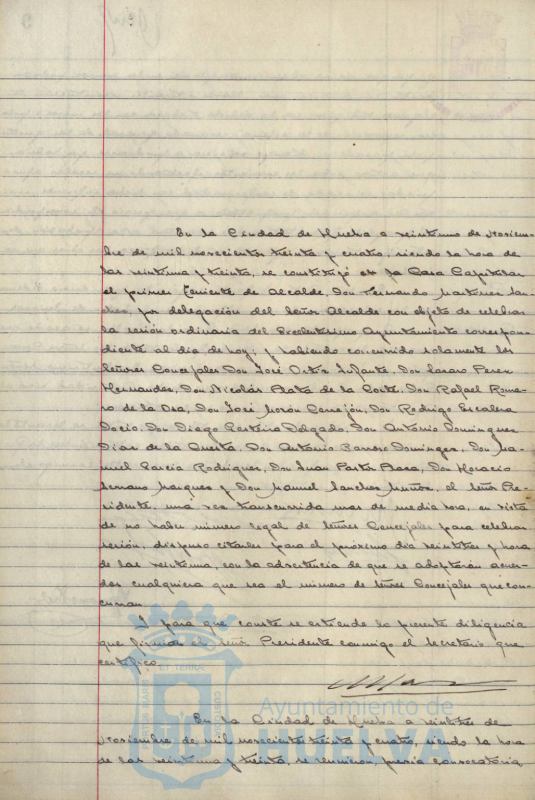 En la Ciudad de Huelva a veintiuno de Noviem-
bre de mil novecientos treinta y cuatro, siendo la hora de
las veintiuna y treinta, se constituyó en la Casa Capitular
el primer Teniente de Alcalde, Don Fernando Martinez San-
chez, por delegación del Señor Alcalde con objeto de celebrar
la sesión ordinaria del Excelentísimo Ayuntamiento correspon-
diente al día de hoy; y habiendo concurrido solamente los
Señores Concejales Don José Ortiz Infante, Don Lazaro Perez
Hernandez, Don Nicolás Plata de la Corte, Don Rafael Rome-
ro de la Osa, Don José Morón Cerrejón, Don Rodrigo Escalera
Docio, Don Diego Delgado, Don Antonio Dominguez
Diaz de la Cuesta, Don Antonio Barroso Dominguez, Don Ma-
nuel Garcia Rodriguez, Don Juan Pastor, Don Horacio
Serrano Marquez y Don Manuel Sanchez Muñoz, el Señor Pre-
sidente, una vez transcurrida mas de media hora, en vista
de no haber número legal de Señores Concejales para celebrar
sesión, dispuso citarles para el próximo día veintitres y hora
de las veintiuna, con la advertencia de que se adoptarán acuer-
dos cualquiera que sea el número de Señores Concejales que con-
curran
Y para que conste se extiende la presente diligencia
que firman el Señor Presidente conmigo el Secretario que
certifico.
En la Ciudad de Huelva a veintitres de
Noviembre de mil novecientos treinta y cuatro, siendo la hora
de las veintiuna y treinta, se reunieron, previa convocatoria
Ayuntamiento de
HUELVA